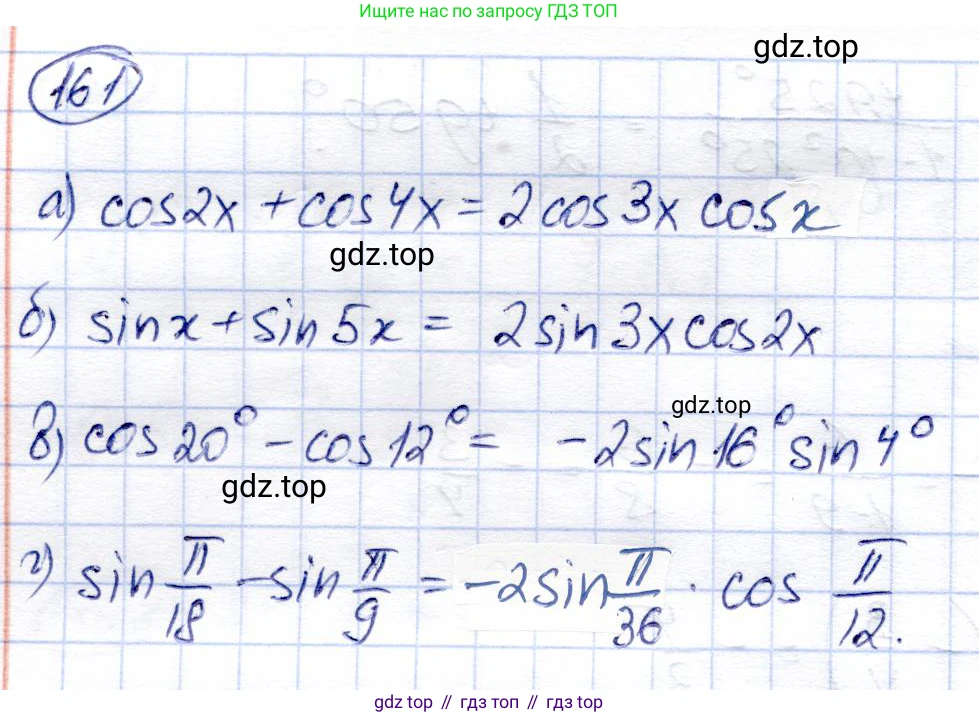 Ищите нас по запросу ГДЗ ТОП
gdz.top
161
а) cos2x + cos4x = 2cos3x cosx
gdz.top
б) sinx + sin5x = 2sin3x cos2x
gdz.top
в) cos20° - cos12° = -2sin16° sin4°
gdz.top
г) sin π/18 - sin π/9 = -2sin π/36 · cos π/12.
gdz.top // гдз топ // gdz.top